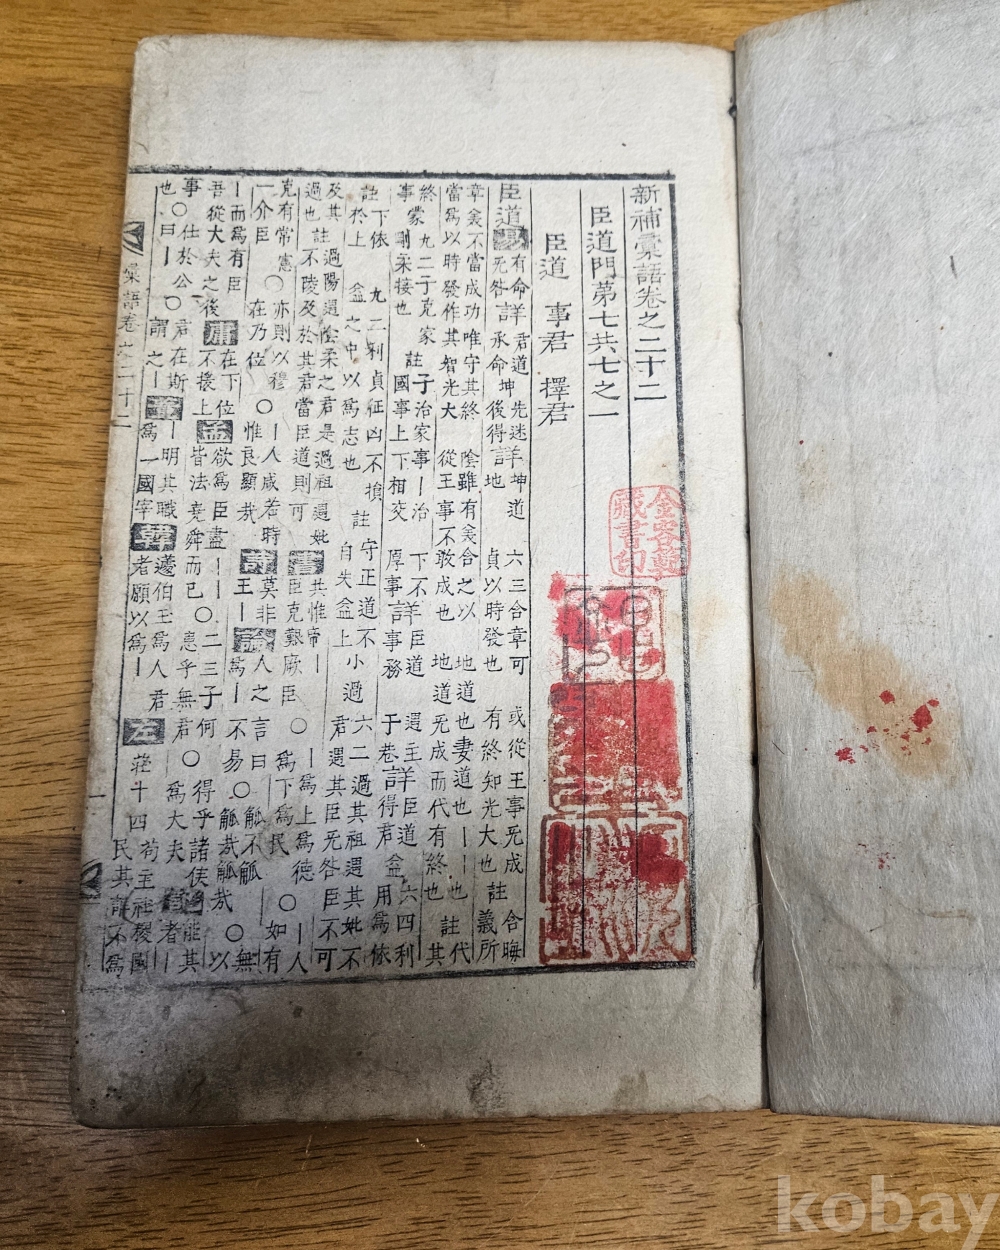 新補彙語卷之二十二
臣道門第七共七之一
臣道 事君 擇君
臣道易有命詳君道坤先迷詳坤道 六三含章可 或從王事旡成 含晦
旡咎 承命 後得 地 貞以時發也 有終知光大也註義所
章羙不當成功唯守其終 陰雖有羙含之以 地道也妻道也丨丨也註代
當爲以時發作其智光大 從王事不敢成也 地道旡成而代有終也 其
終蒙九二子克家註子治家事丨治 下不詳臣道 還主詳臣道 六四利
事 剛柔接也 國事上下相交 厚事 事務 于巷 得君益用爲依
註下依 九二利貞征凶不損註守正道不 小過六二過其祖還其妣不
於上 益之中以爲志也 自失益上 君還其臣旡咎臣不可
及其註過陽還陰柔之君是過祖還妣書共惟帝丨 ○丨爲上爲德○丨人
過也 不陵及於其君當臣道則可 臣克艱厥臣 爲下爲民 如有
克有常憲○亦則以穆○丨人咸若時詩莫非論人之言曰 觚不觚 ○無
一介臣 在乃位 惟良顯哉 王丨 爲丨不易○觚哉觚哉 以
丨而爲有臣庸在下位孟欲爲臣盡丨丨○二三子何 ○得乎諸侯 莊其
吾從大夫之後 不援上 皆法堯舜而已 患乎無君 爲大夫 者丨
事○仕於公○君在斯 丨明其職韓蘧伯玉爲人君左莊十四 苟主社稷國
也 曰丨 謂之丨 爲一國宰 者願以爲丨 民其誰不爲
彙語卷之二十二 一
藏書印
kobay